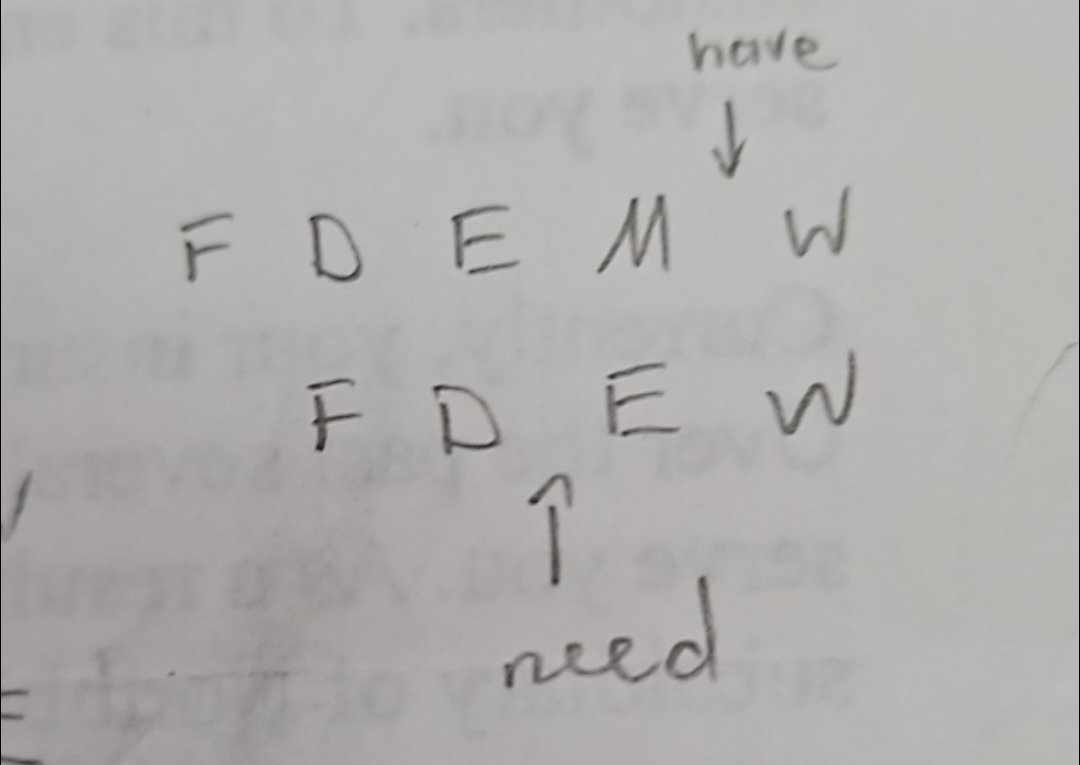 have
↓
F D E M W
F D E W
↑
need